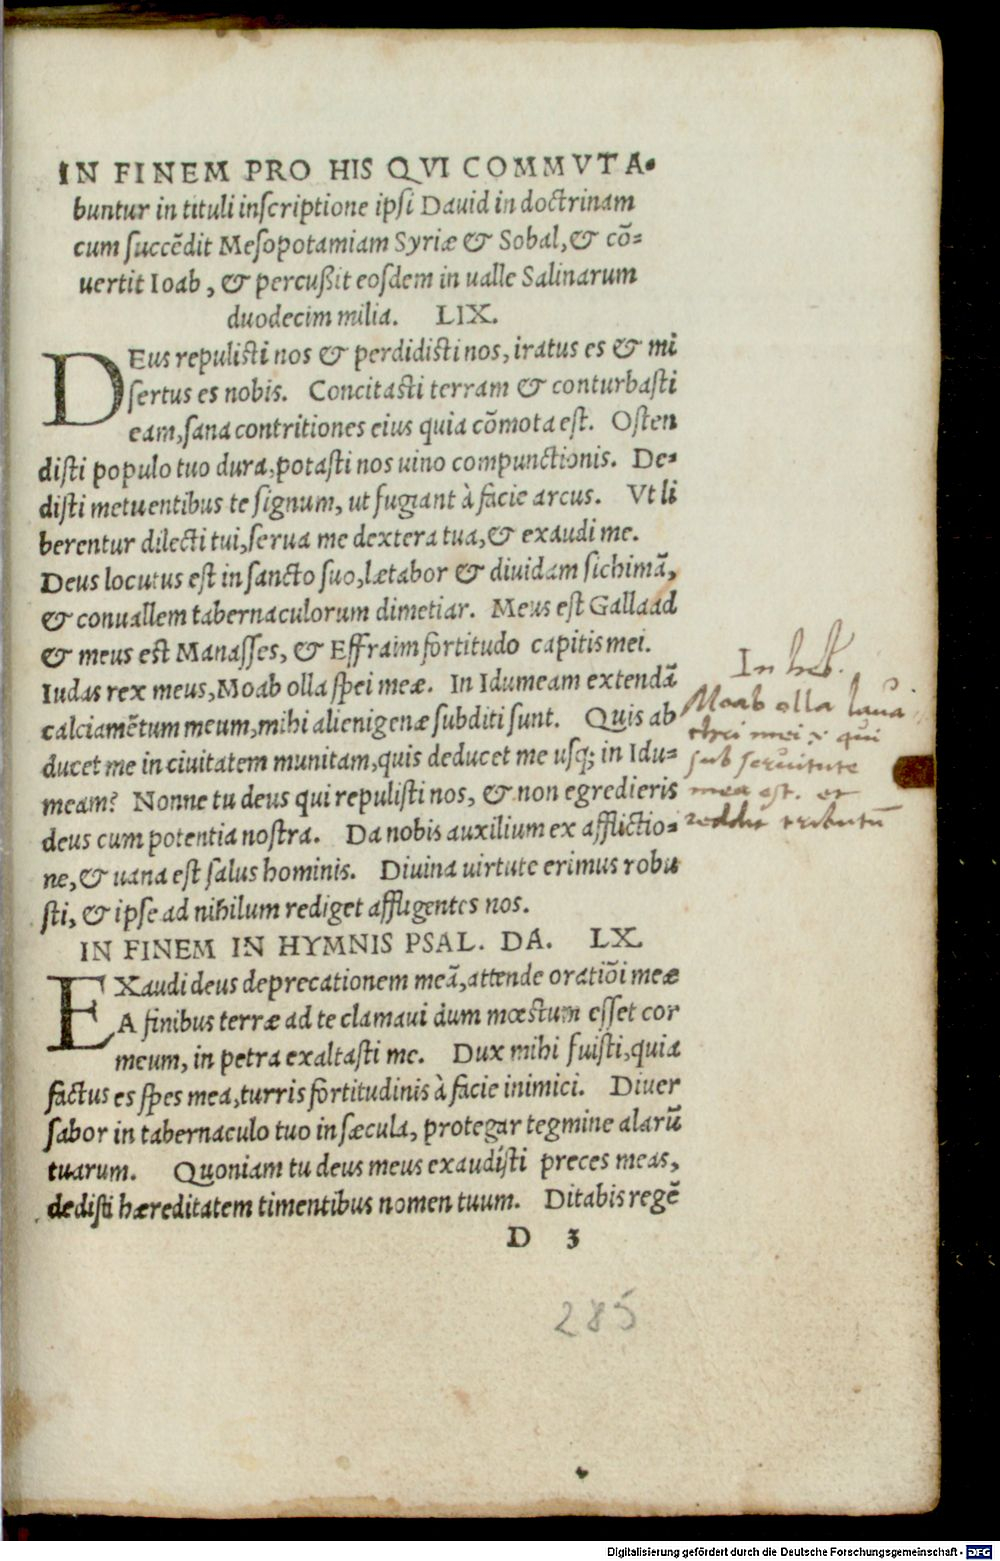 IN FINEM PRO HIS QVI COMMVTA-
buntur in tituli inſcriptione ipſi Dauid in doctrinam
cum ſuccẽdit Meſopotamiam Syriæ & Sobal, & cõ-
uertit Ioab, & percußit eoſdem in ualle Salinarum
duodecim milia. LIX.
DEus repuliſti nos & perdidiſti nos, iratus es & mi
ſertus es nobis. Concitaſti terram & conturbaſti
eam, ſana contritiones eius quia cõmota eſt. Oſten
diſti populo tuo dura, potaſti nos uino compunctionis. De-
diſti metuentibus te ſignum, ut fugiant à facie arcus. Vt li
berentur dilecti tui, ſerua me dextera tua, & exaudi me.
Deus locutus eſt in ſancto ſuo, lætabor & diuidam ſichimã,
& conuallem tabernaculorum dimetiar. Meus eſt Gallaad
& meus eſt Manaſſes, & Effraim fortitudo capitis mei.
Iudas rex meus, Moab olla ſpei meæ. In Idumeam extendã
calciamẽtum meum, mihi alienigenæ ſubditi ſunt. Quis ab
ducet me in ciuitatem munitam, quis deducet me uſq; in Idu-
meam? Nonne tu deus qui repuliſti nos, & non egredieris
deus cum potentia noſtra. Da nobis auxilium ex afflictio-
ne, & uana eſt ſalus hominis. Diuina uirtute erimus robu
ſti, & ipſe ad nihilum rediget affligentes nos.
In heb.
Moab olla laua
chri mei .i. qui
sub seruitute
mea est. et
reddit tributũ
IN FINEM IN HYMNIS PSAL. DA. LX.
EXaudi deus deprecationem meã, attende oratiõi meæ
A finibus terræ ad te clamaui dum mœstum eſſet cor
meum, in petra exaltaſti me. Dux mihi fuiſti, quia
factus es ſpes mea, turris fortitudinis à facie inimici. Diuer
ſabor in tabernaculo tuo in ſæcula, protegar tegmine alarũ
tuarum. Quoniam tu deus meus exaudiſti preces meas,
dediſti hæreditatem timentibus nomen tuum. Ditabis regẽ
D 3
285
Digitalisierung gefördert durch die Deutsche Forschungsgemeinschaft - DFG